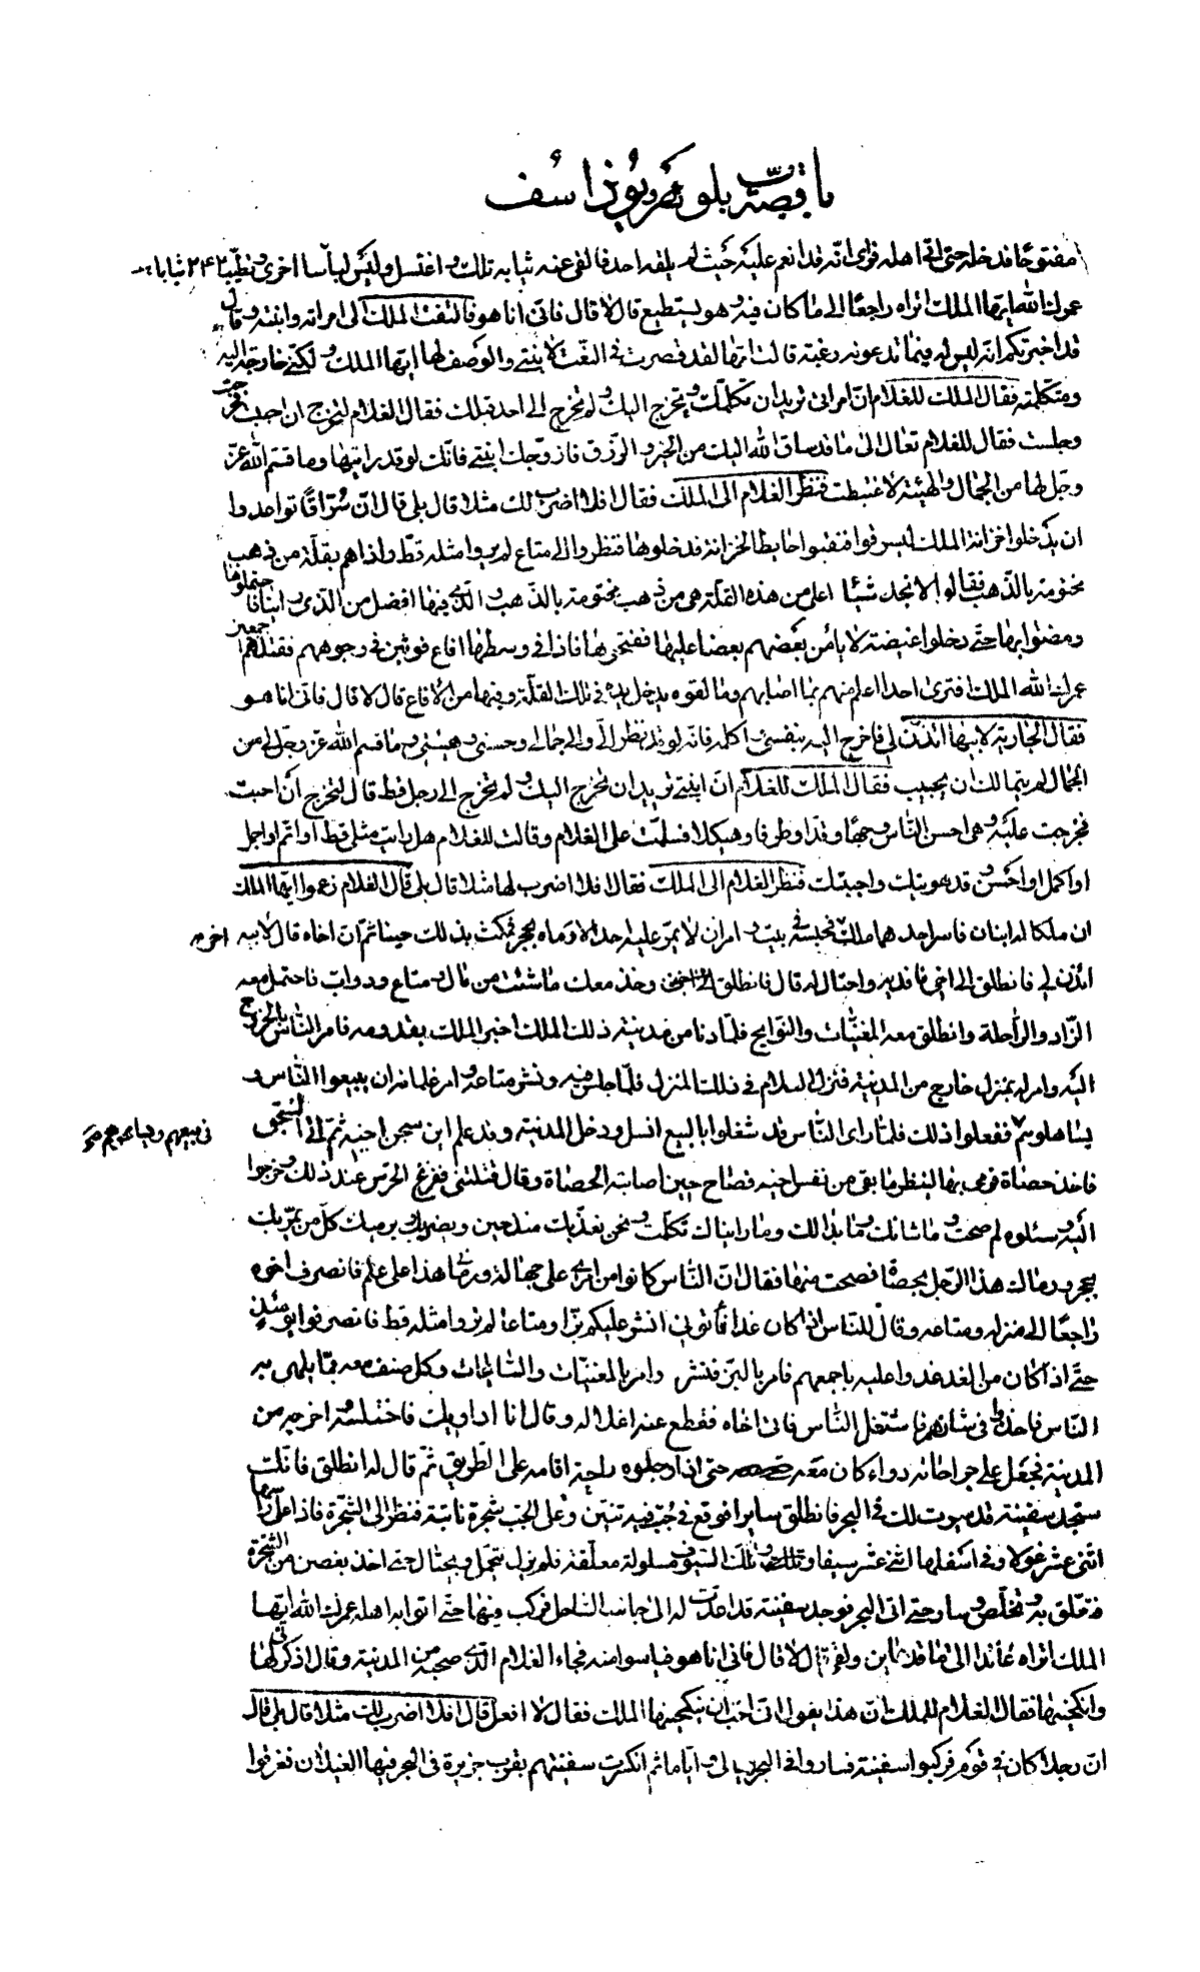 باقصّة بلوهر ويوذاسف
مفتوحًا فدخله حتى اتى اهله فراى انّه قد انعم عليه حيث لم يلقه احد فالقى عنه ثيابه تلك و اغتسل و لبس لباسا اخرى و تطيّب ٢٤٢ ثيابا
عمرك الله ايّها الملك اتراه راجعًا الى ما كان فيه و هو يستطيع قال لا قال فانّى انا هو فالتفت الملك الى امراته و ابنته و قال
قد اخبرتكم انّه ليس له فيما تدعونه رغبة قالت امّها لقد قصرت فى النعت لابنتى و الوصف لها ايّها الملك و لكنّى خارجة اليه
و متكلمة فقال الملك للغلام انّ امراتى تريد ان تكلمك و تخرج اليك و لم تخرج الى احد قبلك فقال الغلام لتخرج ان احبت فخرجت
و جلست فقال للغلام تعال الى ما قد ساق الله اليك من الخير و الرزق فازوّجك ابنتى فانّك لو قد رايتها و ما قسم الله عزّ
و جل لها من الجمال و الهيئة لاغتبطت فنظر الغلام الى الملك فقال افلا اضرب لك مثلا قال بلى قال انّ سرّاقًا تواعدوا
ان يدخلوا خزانة الملك ليسرقوا فنقبوا حايط الخزانة فدخلوها فنظروا الى متاع لم يروا مثله قطّ و اذا هم بقلّة من ذهب
مختومة بالذّهب فقالوا لا نجد شيئا اعلى من هذه القلّة هى من ذهب مختومة بالذّهب و الذى فيها افضل من الذى راينا فاحتملوها
و مضوا بها حتى دخلوا غيضة لا يامن بعضهم بعضا عليها ففتحوها فاذا فى وسطها افاع فوثبن فى وجوههم فقتلنهم اجمعين
عمرك الله ايّها الملك افترى احدا علم منهم بما اصابهم و ما لقوه يدخل يده فى تلك القلّة و فيها من الافاع قال لا قال فانّى انا هو
فقال الجارية لابيها ائذن لى فاخرج اليه بنفسى و اكلمه فانّه لو قد نظر الىّ و الى جمالى و حسنى و هيئتى و ما قسم الله عز و جل لى من
الجمال لم يتمالك ان يجيب فقال الملك للغلام انّ ابنتى تريد ان تخرج اليك و لم تخرج الى رجل قط قال لتخرج ان احبت
فخرجت عليه و هى احسن النّاس وجها و قدّا و طرفا و هيكلا فسلمت على الغلام و قالت للغلام هل رايت مثلى قط او اتمّ او اجمل
او اكمل او احسن و قد هويتك و احببتك فنظر الغلام الى الملك فقال افلا اضرب لها مثلا قال بلى قال الغلام زعموا ايّها الملك
ان ملكا له ابنان فاسر احدهما ملك فحبسه فى بيت و امر ان لا يمرّ عليه احد الا رماه بحجر فمكث بذلك حينا ثمّ انّ اخاه قال لابيه
ائذن لى فانطلق الى اخى فافديه و احتال له قال فانطلق و خذ معك ما شئت من مال و متاع و دواب فاحتمل معه
الزّاد و الرّاحلة و انطلق معه المغنيّات و النوايح فلمّا دنا من مدينة ذلك الملك اخبر الملك بقدومه فامر النّاس بالخروج
اليه و امر له بمنزل خارج من المدينة فنزل الغلام فى ذلك المنزل فلمّا جلس فيه و نشر متاعه و امر غلمانه ان يبيعوا النّاس و
يساهلوهم ففعلوا ذلك فلمّا راى النّاس قد شغلوا بالبيع انسل و دخل المدينة و قد علم اين سجن اخيه ثمّ اتى السّجن فى بيعهم
فاخذ حصاة فرمى بها لينظر ما بقى من نفس اخيه فصاح حين اصابته الحصاة و قال قتلتنى ففزع الحرس عند ذلك و خرجوا
اليه و سئلوه لم صحت و ما شانك و ما بدا لك و ما رايناك تكلّمت و نحن نعذّبك منذ حين و يضربك و يرميك كلّ من يمرّ بك
بحجر و رماك هذا الرّجل بحصاة فصحت منها فقال انّ النّاس كانوا من امرى على جهالة و رمانى هذا على علم فانصرف اخوه
راجعًا الى منزله و متاعه و قال للنّاس اذا كان غدا فأتونى انشر عليكم بزّا و متاعا لم تروا مثله قط فانصرفوا يومئذ
حتّى اذا كان من الغد غدوا عليه باجمعهم فامر بالبزّ فنشر و امر بالمغنيات و النّائحات و كل صنف معه ممّا يلهى به
النّاس فاخذوا فى شانهم فاشتغل النّاس فاتى اخاه فقطع عنه اغلاله و قال انا اداويك فاختلسه و اخرجه من
المدينة فجعل على جراحاته دواء كان معه حتى اذا وجد راحة اقامه على الطّريق ثمّ قال له انطلق فانّك
ستجد سفينة قد سيرت لك فى البحر فانطلق سايرا فوقع فى جبّ فيه تنّين و على الجبّ شجرة نابتة فنظر الى الشّجرة فاذا على راسها
اثنى عشر غولا و فى اسفلها اثنى عشر سيفا و تلك السّيوف مسلولة معلّقة فلم يزل يتحمل و يحتال حتى اخذ بغصن من الشّجرة
فتعلّق به و تخلّص و سار حتى اتى البحر فوجد سفينة قد اعدّت له الى جانب السّاحل فركب فيها حتّى اتوا به اهله عمرك الله ايّها
الملك اتراه عائدا الى ما قد عاين و لقى قال لا قال فانّى انا هو فيئسوا منه فجاء الغلام الذى صحبه من المدينة و قال اذكرنى لها
و انكحنيها فقال الغلام للملك انّ هذا يقول انّى احبّ ان ينكحنيها الملك فقال لا افعل قال افلا اضرب لك مثلا قال بلى قال
انّ رجلا كان فى قوم فركبوا سفينة فساروا فى البحر ليالى و ايّاما ثم انكسرت سفينتهم بقرب جزيرة فى البحر فيها الغيلان فغرقوا